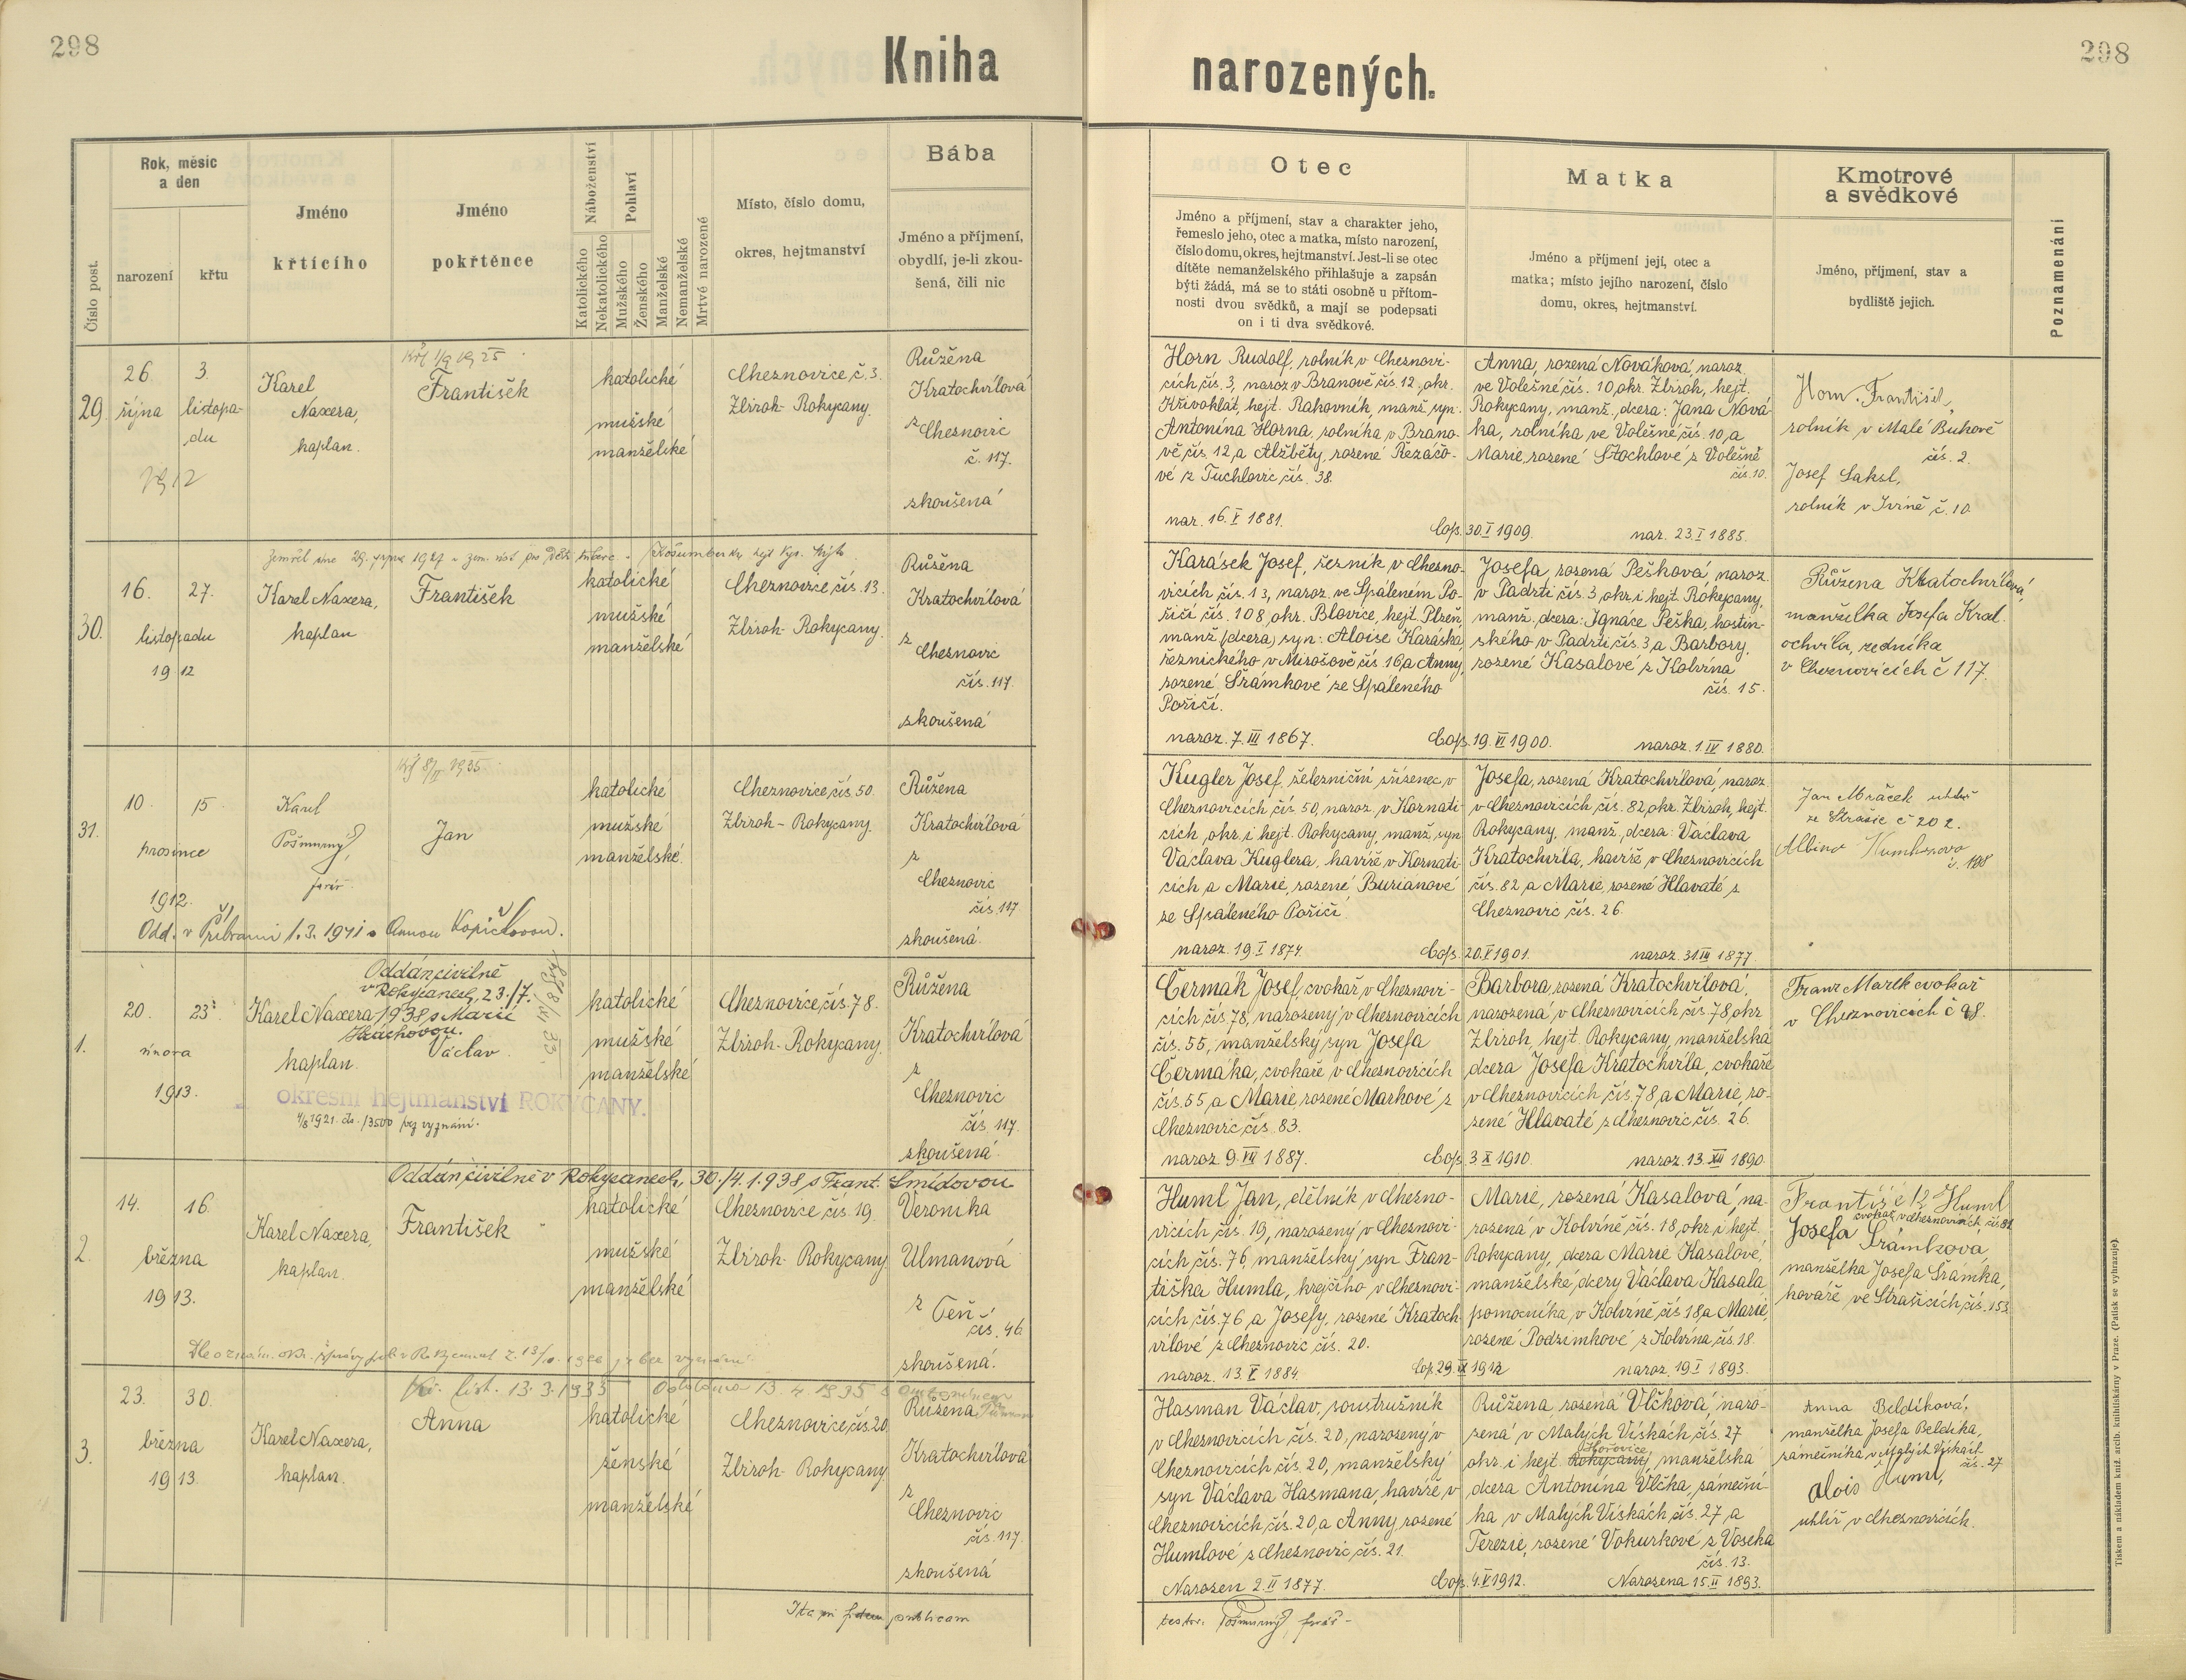 298
Kniha
narozených.
298
Číslo post.
Rok, měsíc
a den
narození
křtu
Jméno
křtícího
Jméno
pokřtěnce
Náboženství
Katolického
Nekatolického
Pohlaví
Mužského
Ženského
Manželské
Nemanželské
Mrtvé narozené
Místo, číslo domu,
okres, hejtmanství
Bába
Jméno a příjmení,
obydlí, je-li zkou-
šená, čili nic
Otec
Jméno a příjmení, stav a charakter jeho,
řemeslo jeho, otec a matka, místo narození,
číslo domu, okres, hejtmanství. Jest-li se otec
dítěte nemanželského přihlašuje a zapsán
býti žádá, má se to státi osobně u přítom-
nosti dvou svědků, a mají se podepsati
on i ti dva svědkové.
Matka
Jméno a příjmení její, otec a
matka; místo jejího narození, číslo
domu, okres, hejtmanství.
Kmotrové
a svědkové
Jméno, příjmení, stav a
bydliště jejich.
Poznamenání
29.
26.
října
3.
listopa-
du
Karel
Naxera,
kaplan.
František
katolické
mužské
manželské
Cheznovice, č. 3.
Zbiroh - Rokycany.
Růžena
Kratochvílová
z Cheznovic
č. 117.
zkoušená
Horn Rudolf, rolník v Cheznovi-
cích čís. 3, naroz. v Branově čís. 12, okr.
Křivoklát, hejt. Rakovník, manž. syn.
Antonína Horna, rolníka v Brano-
vě čís. 12, a Alžběty, rozené Řezáčo-
vé z Tuchlovic čís. 38.
nar. 16. V 1881.
Cop. 30. I 1909.
Anna, rozená Nováková, naroz.
ve Volešné čís. 10, okr. Zbiroh, hejt.
Rokycany, manž. dcera: Jana Nová-
ka, rolníka ve Volešné čís. 10, a
Marie, rozené Štochlové z Volešné
čís. 10.
nar. 23. I 1885.
Horn František,
rolník v Malé Bukově
čís. 2.
Josef Saksl,
rolník v Jivině č. 10.
30.
16.
27.
listopadu
1912
Karel Naxera,
kaplan
František
katolické
mužské
manželské
Cheznovice, čís. 13.
Zbiroh - Rokycany.
Růžena
Kratochvílová
z
Cheznovic
čís. 117.
zkoušená
Karásek Josef, řezník v Chezno-
vicích čís. 13, naroz. ve Spáleném Po-
říčí čís. 108, okr. Blovice, hejt. Plzeň,
manž. (dcera) syn: Aloise Karáska,
řeznického v Mirošově čís. 16, a Anny,
rozené Šrámkové ze Spáleného
Poříčí.
naroz. 7. III 1867.
Cop. 19. VI 1900.
Josefa, rozená Pešková, naroz.
v Padrti čís. 3, okr. i hejt. Rokycany,
manž. dcera: Ignáce Peška, hostin-
ského v Padrti čís. 3, a Barbory,
rozené Kasalové z Kolvína
čís. 15.
naroz. 1. IV 1880.
Růžena Kratochvílová,
manželka Josefa Krat-
ochvíla, zedníka
v Cheznovicích č 117.
31.
10.
15
prosince
1912.
Karel
Pošmurný,
farář.
Jan
katolické
mužské
manželské.
Cheznovice, čís. 50.
Zbiroh - Rokycany.
Růžena
Kratochvílová
z
Cheznovic
čís. 117.
zkoušená.
Odd. v Příbrami 1.3. 1941 s Annou Kopičkovou.
Kugler Josef, železniční zřízenec v
Cheznovicích čís. 50, naroz. v Kornati-
cích, okr. i hejt. Rokycany, manž. syn
Václava Kuglera, havíře v Kornati-
cích a Marie, rozené Burianové
ze Spáleného Poříčí.
naroz. 19. I 1874.
Cop. 20. V 1901.
Josefa, rozená Kratochvílová, naroz.
v Cheznovicích, čís. 82, okr. Zbiroh, hejt.
Rokycany, manž. dcera: Václava
Kratochvíla, havíře v Cheznovicích
čís. 82 a Marie, rozené Hlavaté z
Cheznovic čís. 26.
naroz. 31. III 1877.
Jan Mráček uhlíř
ze Strašic č 202.
Albína
č. 198
1.
20.
23.
února
1913.
Oddán civilně
v Rokycanech, 23./7.
1938 s Marií
Karel Naxera
kaplan.
Václav
okresní hejtmanství ROKYCANY.
bez vyznání.
katolické
mužské
manželské
Cheznovice, čís. 78.
Zbiroh - Rokycany.
Růžena
Kratochvílová
z
Cheznovic
čís. 117.
zkoušená.
Čermák Josef, cvokař, v Cheznovi-
cích čís. 78, narozený v Cheznovicích
čís. 55, manželský syn Josefa
Čermáka, cvokaře v Cheznovicích
čís. 55, a Marie, rozené Markové z
Cheznovic čís. 83.
naroz. 9. VII 1887.
Cop. 3. X 1910.
Barbora, rozená Kratochvílová,
narozená v Cheznovicích čís. 78, okr.
Zbiroh, hejt. Rokycany, manželská
dcera Josefa Kratochvíla, cvokaře
v Cheznovicích čís. 78, a Marie, ro-
zené Hlavaté z Cheznovic čís. 26.
naroz. 13. XII 1890.
Franz Marek cvokař
v Cheznovicích č 98.
2.
14.
16.
března
1913.
Oddán civilně v Rokycanech, 30./4. 1938 s Frant. Šmídovou
Karel Naxera,
kaplan.
František
katolické
mužské
manželské
Cheznovice čís. 19.
Zbiroh - Rokycany
Veronika
Ulmanová
z Těň
čís. 46.
zkoušená.
Huml Jan, dělník v Chezno-
vicích čís. 19, narozený v Cheznovi-
cích čís. 76, manželský syn Fran-
tiška Humla, krejčího v Cheznovi-
cích čís. 76 a Josefy, rozené Kratoch-
vílové z Cheznovic čís. 20.
naroz. 13. V 1884.
Cop. 29. IX 1912
Marie, rozená Kasalová, na-
rozená v Kolvíně čís. 18, okr. i hejt.
Rokycany, dcera Marie Kasalové,
manželské dcery Václava Kasala,
pomocníka, v Kolvíně čís 18, a Marie,
rozené Podzimkové z Kolvína, čís. 18.
naroz. 19. I 1893.
František Huml
cvokař v Cheznovicích čís. 81
Josefa Šrámková
manželka Josefa Šrámka,
kováře, ve Strašicích čís. 153.
3.
23.
30.
března
1913.
Karel Naxera,
kaplan.
Kř. list. 13. 3. 1935
Anna
katolické
ženské
manželské
Cheznovice, čís. 20
Zbiroh - Rokycany
Růžena
Kratochvílová
z
Cheznovic
čís. 117.
zkoušená
Hasman Václav, soustružník
v Cheznovicích čís. 20, narozený v
Cheznovicích čís. 20, manželský
syn Václava Hasmana, havíře v
Cheznovicích, čís. 20, a Anny, rozené
Humlové z Cheznovic, čís. 21.
Narozen 2. II 1877.
Cop. 4. V 1912.
Růžena, rozená Vlčková, naro-
zená v Malých Vískách, čís. 27
Hořovice
okr. i hejt. Rokycany, manželská
dcera Antonína Vlčka, zámeční-
ka v Malých Vískách, čís. 27, a
Terezie, rozené Vokurkové z Voseka
čís. 13.
Narozena 15. II 1893.
Anna Beldíková,
manželka Josefa Beldíka,
zámečníka, v Malých Vískách
čís. 27
Alois Huml,
uhlíř v Cheznovicích.
Ita in fidem publicam
testor: Pošmurný, farář
Tiskem a nákladem kniž. arcib. knihtiskárny v Praze. (Patisk se vyhrazuje).